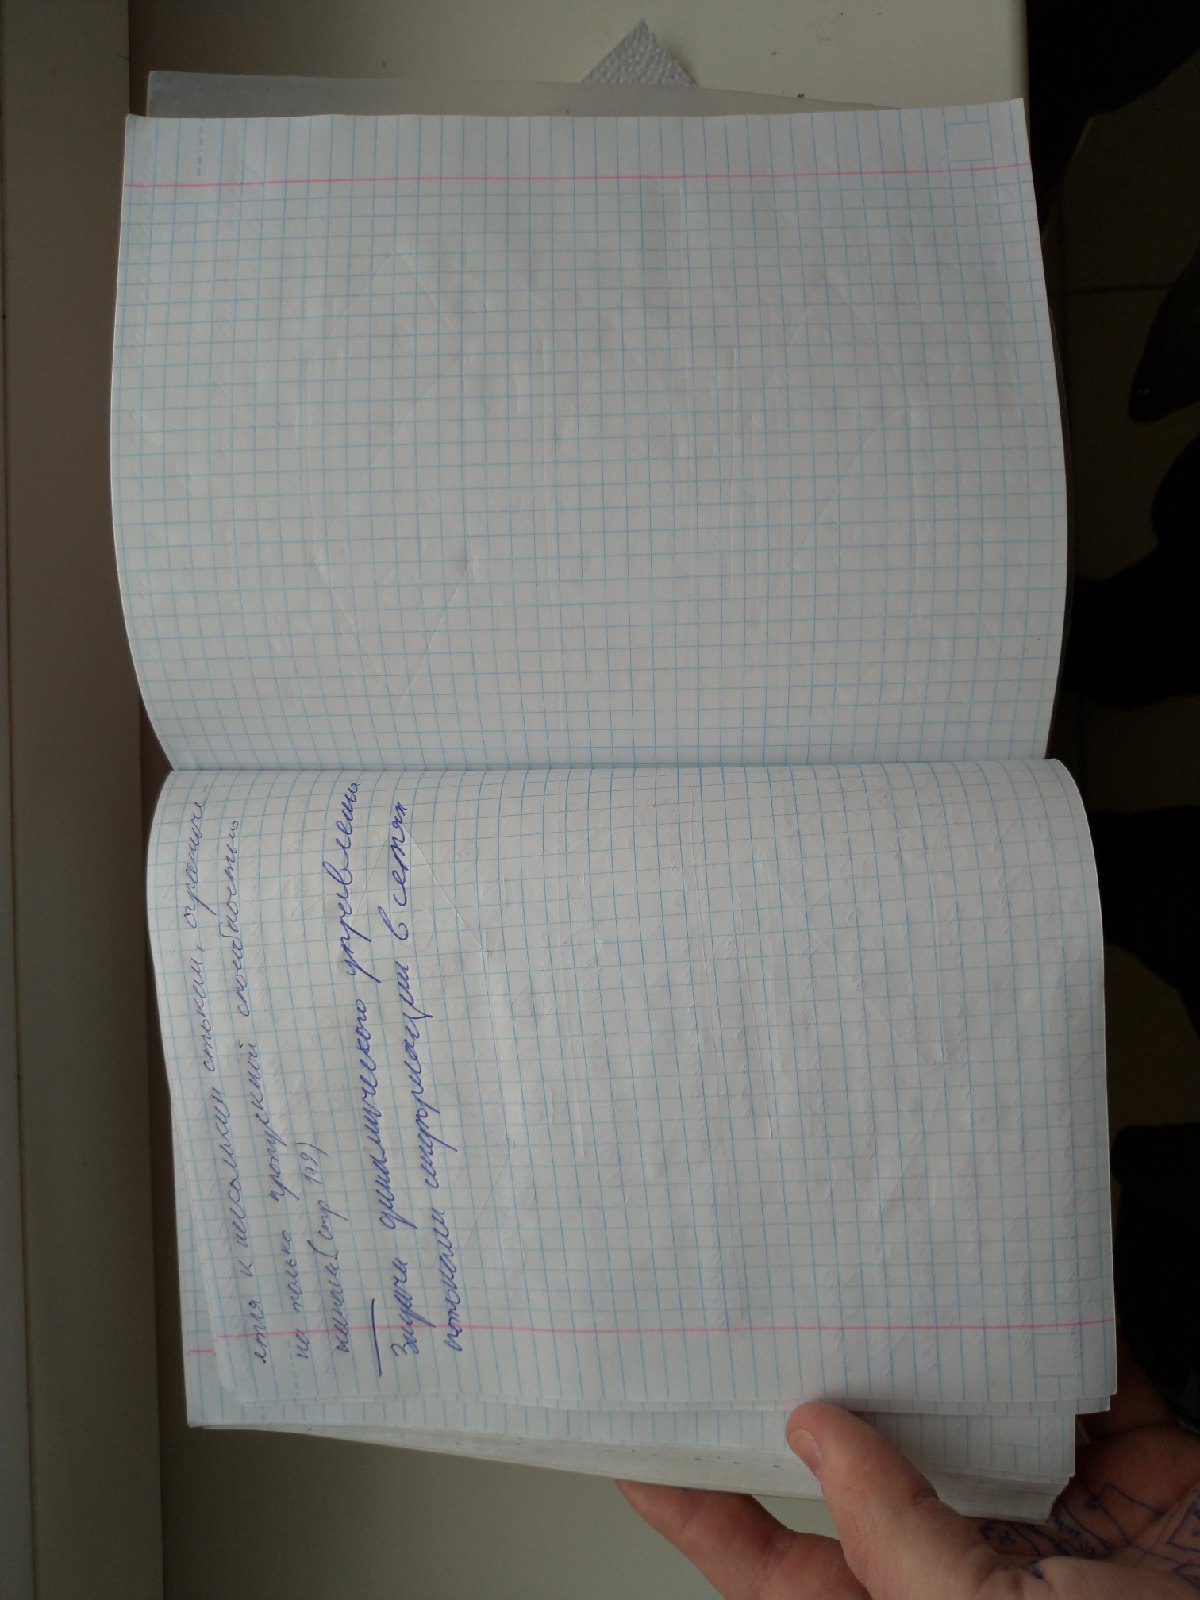 ется к нескольким стокам, ограниче-
на только пропускной способностью
канала (стр 179)
Задачи динамического управления
потоками информации в сетях